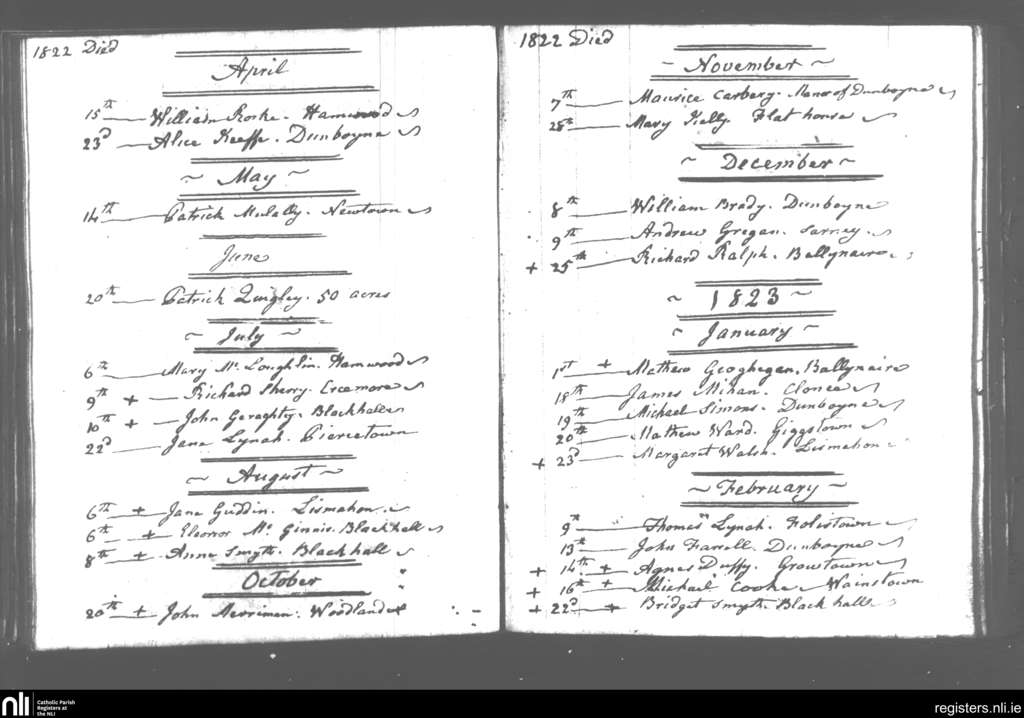 1822 Died
April
15th — William Rorke. Hamwood
23d — Alice Keeffe. Dunboyne
~ May ~
14th — Patrick Mulally. Newtown
June
20th — Patrick Quigley. 50 acres
~ July ~
6th — Mary Mc. Loughlin. Hamwood
9th + — Richard Sherry. Creemore
10th + — John Geraghty. Blackhall
22d — Jane Lynch. Piercetown
~ August ~
6th + Jane Guddin. Lismahon.
6th + Eleonor Mc. Ginnis. Blackhall
8th + Anne Smyth. Blackhall
October
20th + John Merriman. Woodland
1822 Died
~ November ~
7th — Maurice Carbery. Manor of Dunboyne
28th — Mary Kelly Flat house
~ December ~
8th — William Brady. Dunboyne
9th — Andrew Gregan. Sarney.
+ 25th — Richard Ralph. Ballynaire
~ 1823 ~
~ January ~
1st + Mathew Geoghegan. Ballynaire
18th — James Mihan. Clonee
19th — Michael Simons. Dunboyne
20th — Mathew Ward. Giggstown
+ 23d — Margaret Walsh. Lismahon
~ February ~
9th — Thomas Lynch. Folistown
13th — John Farrell. Dunboyne
+ 14th + Agnes Duffy. Growtown
+ 16th + Michael Cooke Wainstown
+ 22d + Bridget Smyth. Blackhall
nli Catholic Parish
Registers at
the NLI
registers.nli.ie